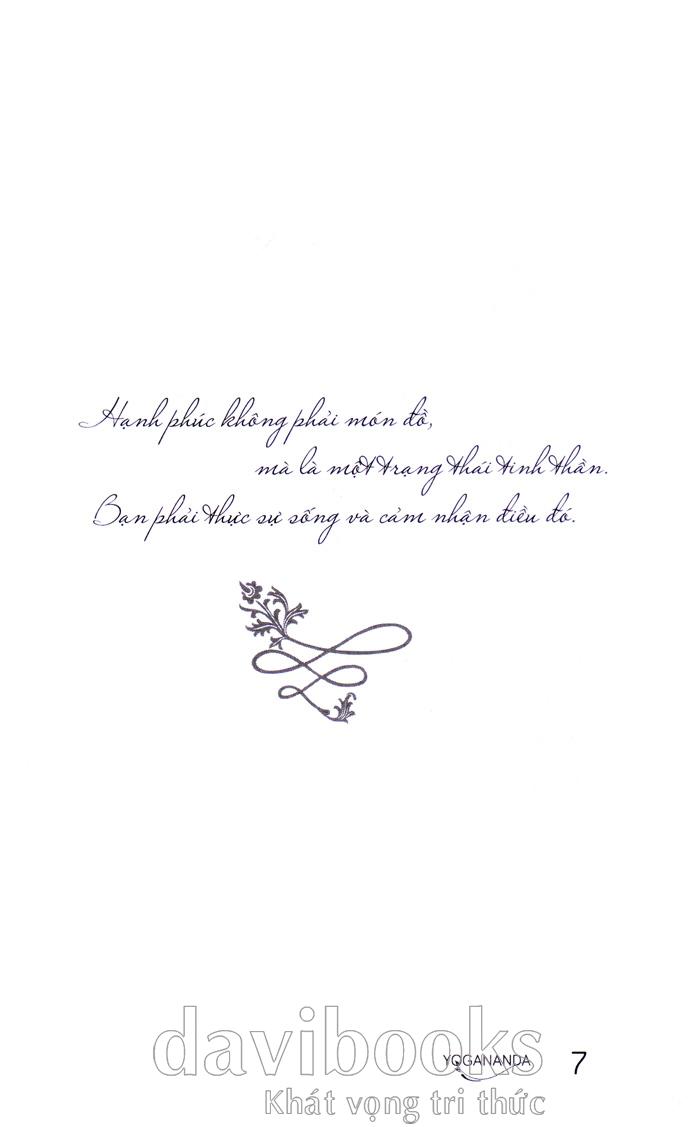 Hạnh phúc không phải món đồ,
mà là một trạng thái tinh thần.
Bạn phải thực sự sống và cảm nhận điều đó.
davibooks
YOGANANDA 7
Khát vọng tri thức